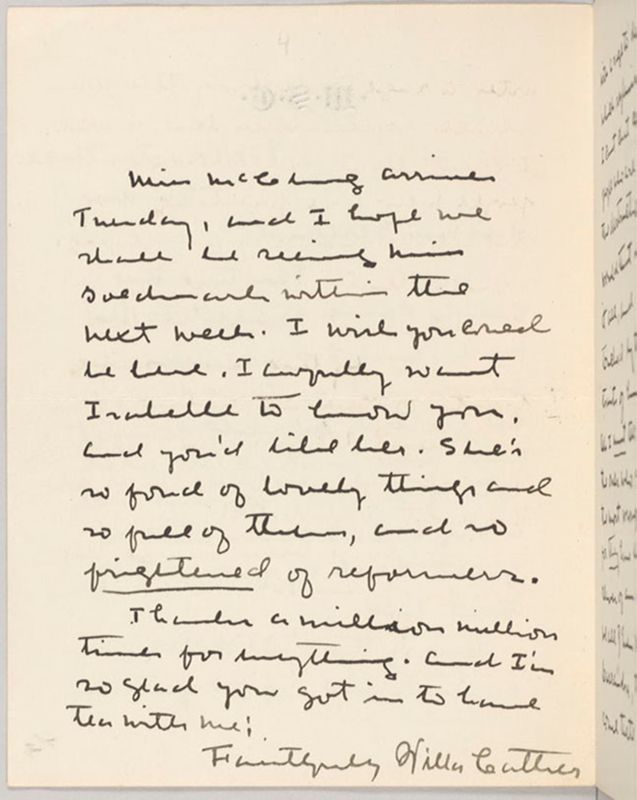 4
W.S.C.
Miss McClung arrives
Tuesday, and I hope we
shall be seeing Miss
within the
next week. I wish you could
be here. I awfully want
Isabelle to know you,
and you'd like her. She's
so fond of lovely things and
so full of them, and so
frightened of reformers.
Thanks a million million
times for everything. And I'm
so glad you got in to have
tea with me!
Faithfully Willa Cather